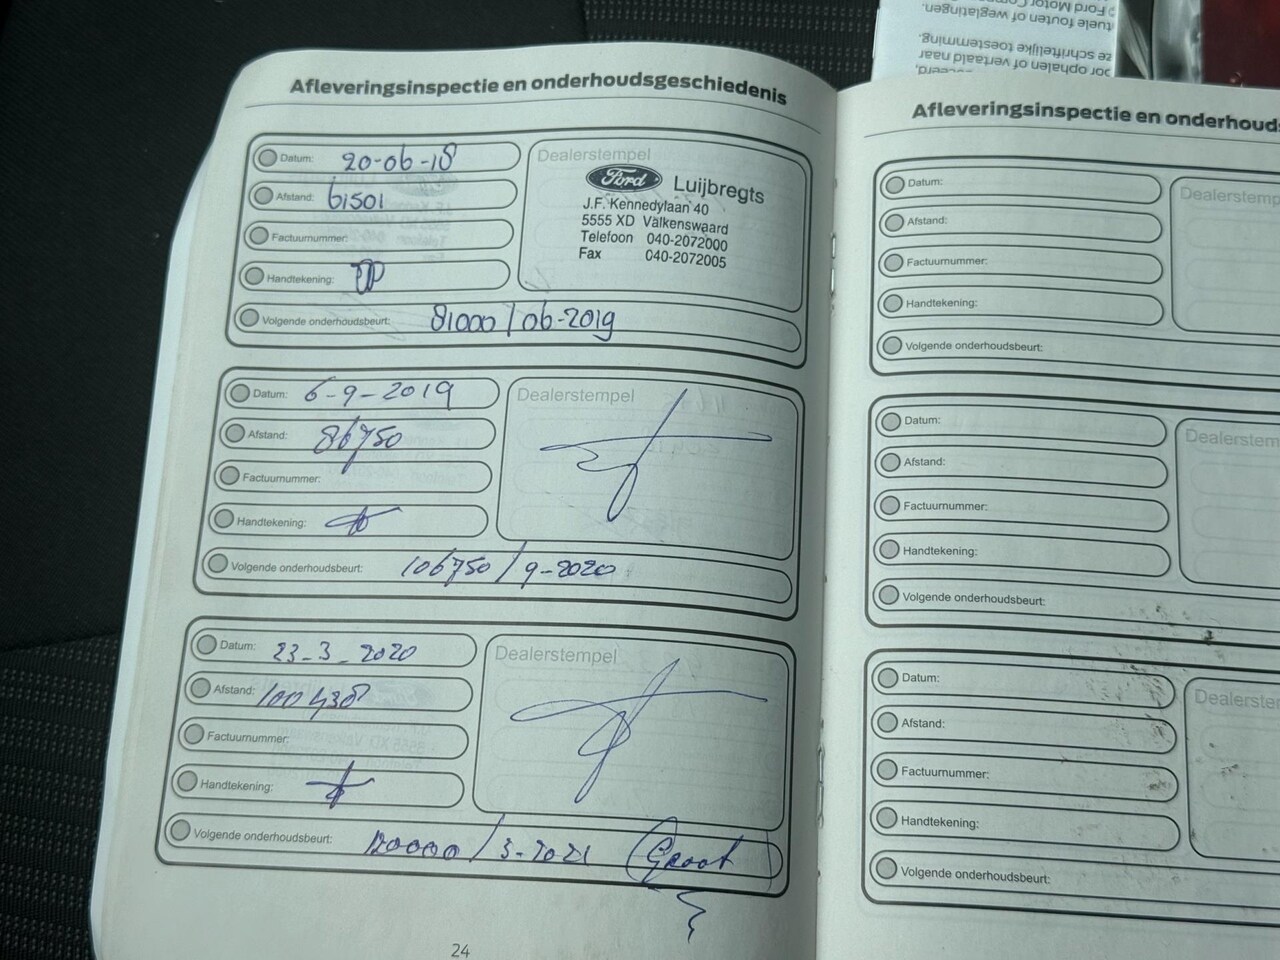 Afleveringsinspectie en onderhoudsgeschiedenis
Datum: 20-06-18
Afstand: 61501
Factuurnummer:
Handtekening:
Volgende onderhoudsbeurt: 81000/06-2019
Dealerstempel
Ford Luijbregts
J.F. Kennedylaan 40
5555 XD Valkenswaard
Telefoon 040-2072000
Fax 040-2072005
Datum: 6-9-2019
Afstand: 86750
Factuurnummer:
Handtekening:
Volgende onderhoudsbeurt: 106750/9-2020
Dealerstempel
Datum: 23-3-2020
Afstand: 100438
Factuurnummer:
Handtekening:
Volgende onderhoudsbeurt: 120000/3-2021 Groot
Dealerstempel
24
Afleveringsinspectie en onderhouds
Datum:
Afstand:
Factuurnummer:
Handtekening:
Volgende onderhoudsbeurt:
Dealerstemp
Datum:
Afstand:
Factuurnummer:
Handtekening:
Volgende onderhoudsbeurt:
Dealerstem
Datum:
Afstand:
Factuurnummer:
Handtekening:
Volgende onderhoudsbeurt:
Dealerste
oor ophalen of vertaald naar
ze schriftelijke toestemming.
tuele fouten of weglatingen.
Ford Motor